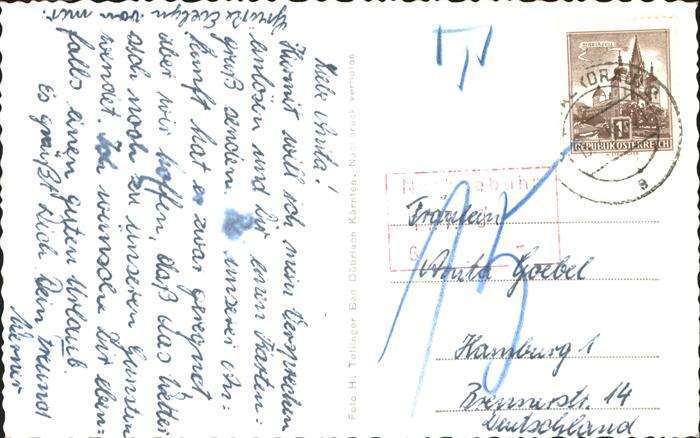 Liebe Anita!
Hiermit will ich mein Versprechen
einlösen und Dir einen Karten-
gruß senden. unserer An-
kunft hat es zwar geregnet
aber wir hoffen, daß das Wetter
sich noch zu unseren Gunsten
wendet. Ich wünsche Dir eben-
falls einen guten Urlaub.
Es grüßt Dich Dein Freund
Werner
Grüße Evelyn von mir.
Foto H. Tollinger Bad Döbriach Kärnten, Nachdruck verboten
MARIAZELL
1S
REPUBLIK ÖSTERREICH
T
15
Nachgebühr
Fräulein
Anita Goebel
Hamburg 1
Brennerstr. 14
Deutschland